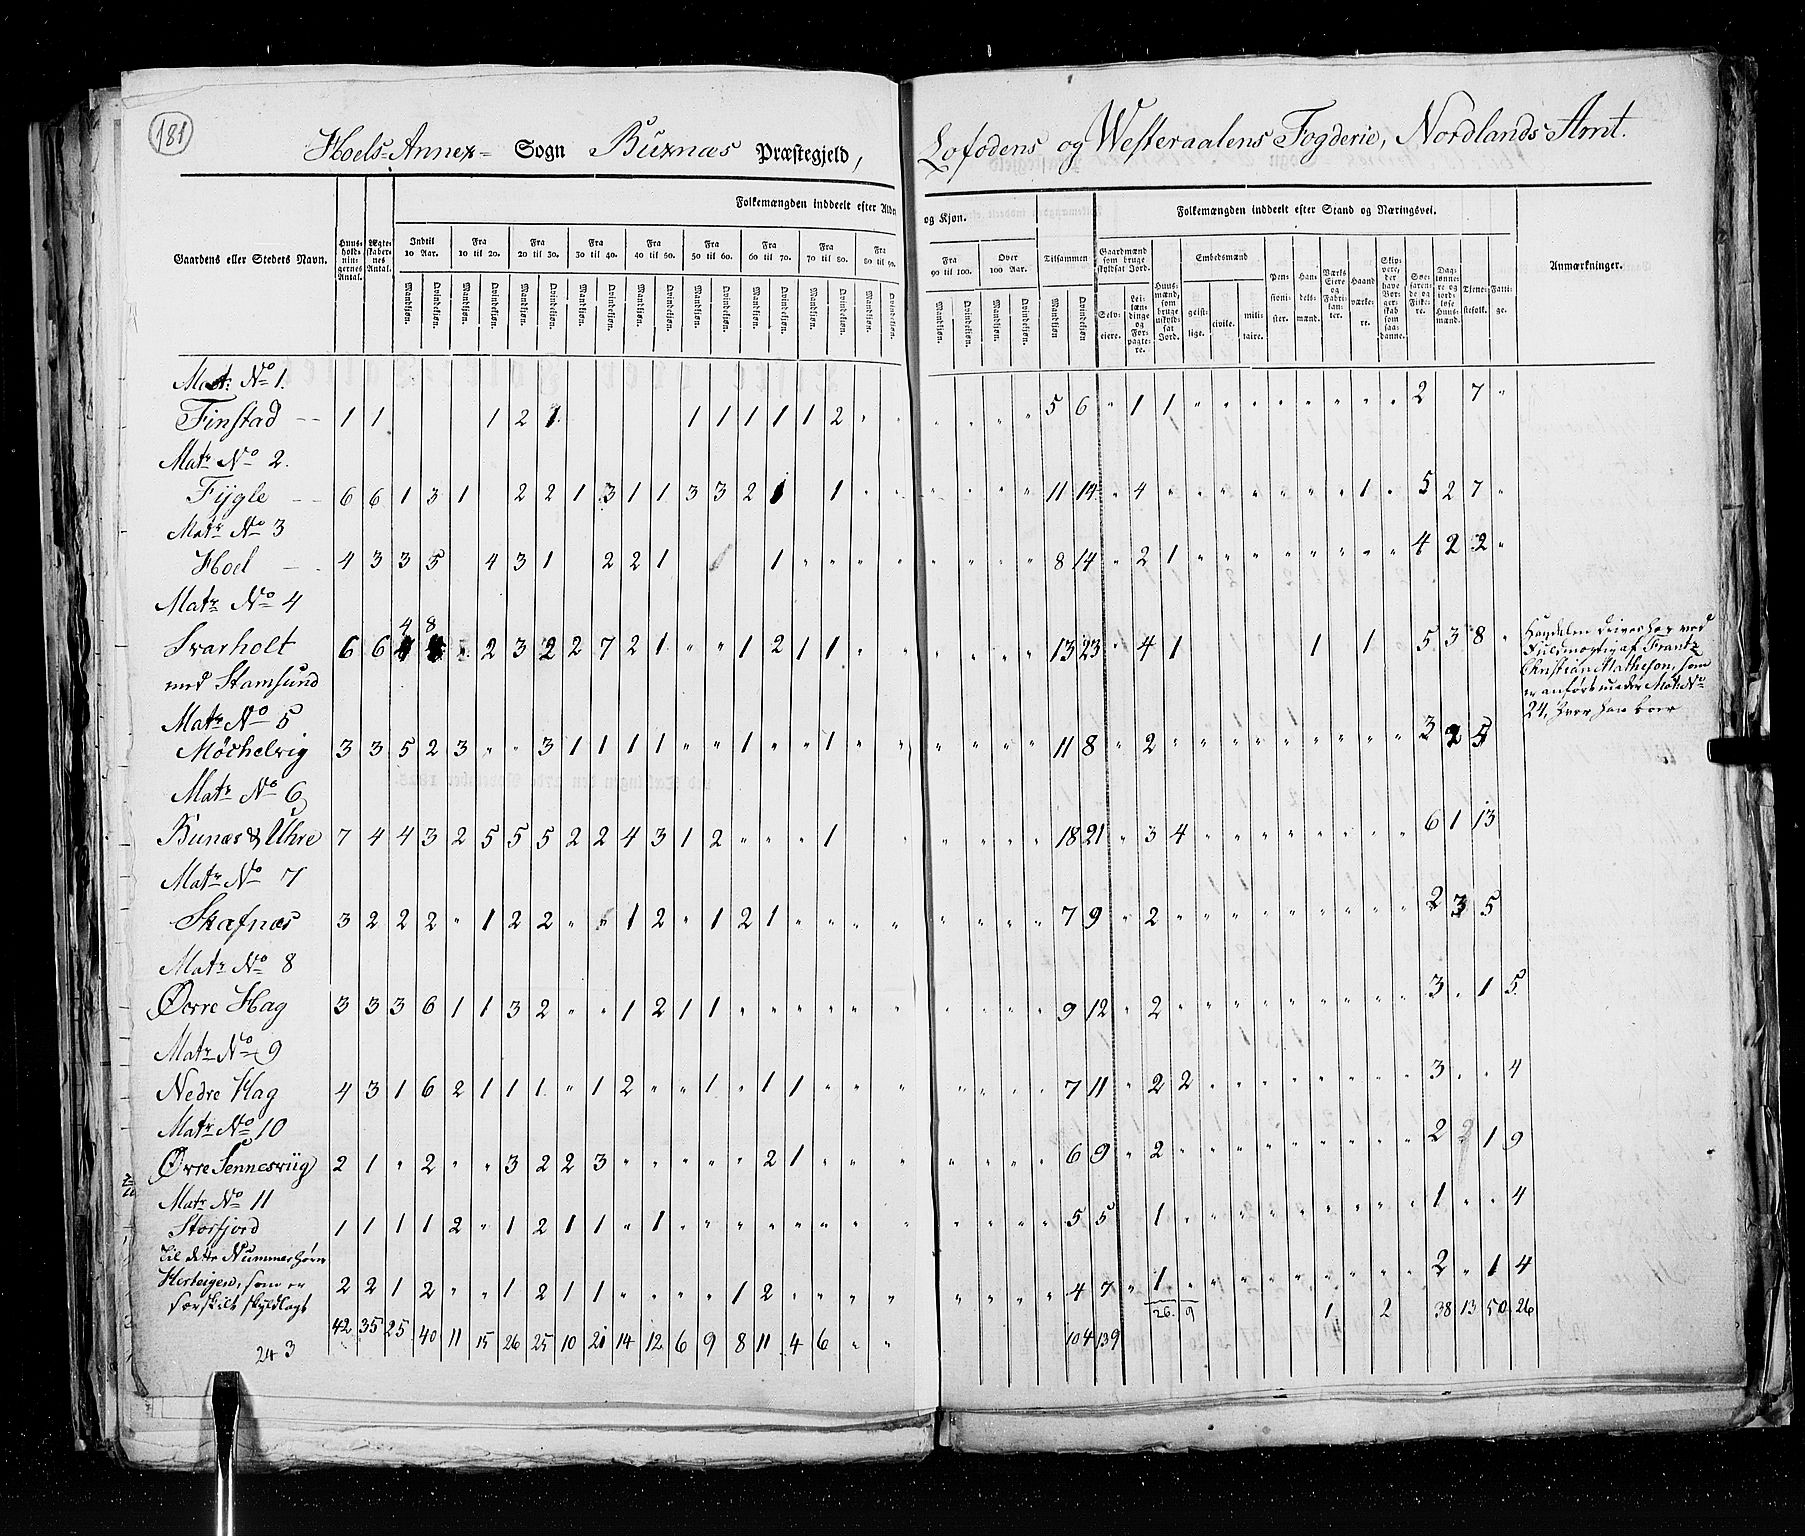 181
Hoels-Annex- Sogn Buxnæs Præstegjeld, Lofodens og Westeraalens Fogderie, Nordlands Amt.
Folkemængden inddeelt efter Alder og Kjøn. Folkemængden inddeelt efter Stand og Næringsvei.
Gaardens eller Stedets Navn. Huus-holdnin-gernes Antal. Ægte-skaber-nes Antal. Indtil 10 Aar. Fra 10 til 20. Fra 20 til 30. Fra 30 til 40. Fra 40 til 50. Fra 50 til 60. Fra 60 til 70. Fra 70 til 80. Fra 80 til 90. Fra 90 til 100. Over 100 Aar. Tilsammen
Gaardmænd bruge skyldsat Jord. Selv-eiere. Lei-læn-dinge og For-pagte-re. Huus-mænd, som bruge uskyld-sat Jord. Embedsmænd geist-lige. civile. mili-taire. Pen-sioni-ster. Han-dels-mænd. Værks Eiere og Fabri-kan-ter. Haand-værke-re. Skip-pere, der have Bor-ger-skab som saa-danne. Søe-farende og Fiske-re. Dag-lønne-re og jord-løse Huus-mænd. Tjene-stefolk. Fatti-ge. Anmærkninger.
Mandkjøn. Qvindekjøn.
Matr No 1.
Finstad 1 1 1 2 1 1 1 1 1 1 2 " " " " " " 5 6 " 1 1 " " " " " " " " 2 7 "
Matr No 2.
Fygle 6 6 1 3 1 2 2 1 3 1 1 3 3 2 1 1 " " " " " " 11 14 " 4 " " " " " " " 1 " 5 2 7 "
Matr No 3
Hoel 4 3 3 5 4 3 1 2 2 1 1 " " " " " " " " 8 14 " 2 1 " " " " " " " " 4 2 2 "
Matr No 4
4 8
Svarholt 6 6 2 3 2 2 7 2 1 " " 1 2 1 1 " " " " " " 13 23 " 4 1 1 1 5 3 8 "
med Stamsund
Handelen drives her ved
Fuldmægtig af Frantz
Christian Matheson, som
er anført under Mat: No
24, hvor han boer
Matr No 5
Mörhelvig 3 3 5 2 3 " " 3 1 1 1 1 " " 1 " " 1 " " " " " " 11 8 " 2 " " " " " " " " " 3 2 5
Matr No 6
Bunæs & Uhre 7 4 4 3 2 5 5 5 2 2 4 3 1 2 " " " 1 " " " " " 18 21 " 3 4 " " " " " " " " 6 1 13
Matr No 7
Skafnæs 3 2 2 2 " 1 2 2 " 1 2 " 1 2 1 " " " " " " " " 7 9 " 2 " " " " " " " " " 2 3 5
Matr No 8
Övre Hag 3 3 3 6 1 1 3 2 " " 1 2 1 1 " " " " " " " " " " 9 12 " 2 " " " " " " " " " 3 " 1 5
Matr No 9
Nedre Hag 4 3 1 6 2 1 1 1 " 1 2 " " 1 " 1 1 " " " " " " " 7 11 " 2 2 " " " " " " " " 3 " " 4
Matr No 10
Övre Sennesviig 2 1 " 2 " " 3 2 2 3 " " " " " 2 1 " " " " " " " 6 9 " 2 " " " " " " " " " 2 2 1 9
Matr No 11
Storfjord 1 1 1 1 2 " 1 2 1 1 " 1 " " " " " " " " " " " " 5 5 1 " " " " " " " " " 1 " " 4
Til dette Nummer hörer
Horteigen, som er 2 2 1 2 " " 1 2 1 1 " " " " 1 2 " " " " " " " " 4 7 " 1 " " " " " " " " " 2 " 1 4
særskilt skyldlagt
42 35 25 40 11 15 26 25 10 21 14 12 6 9 8 11 4 6 " " 104 139 26. 9 1 2 38 13 50 26
243